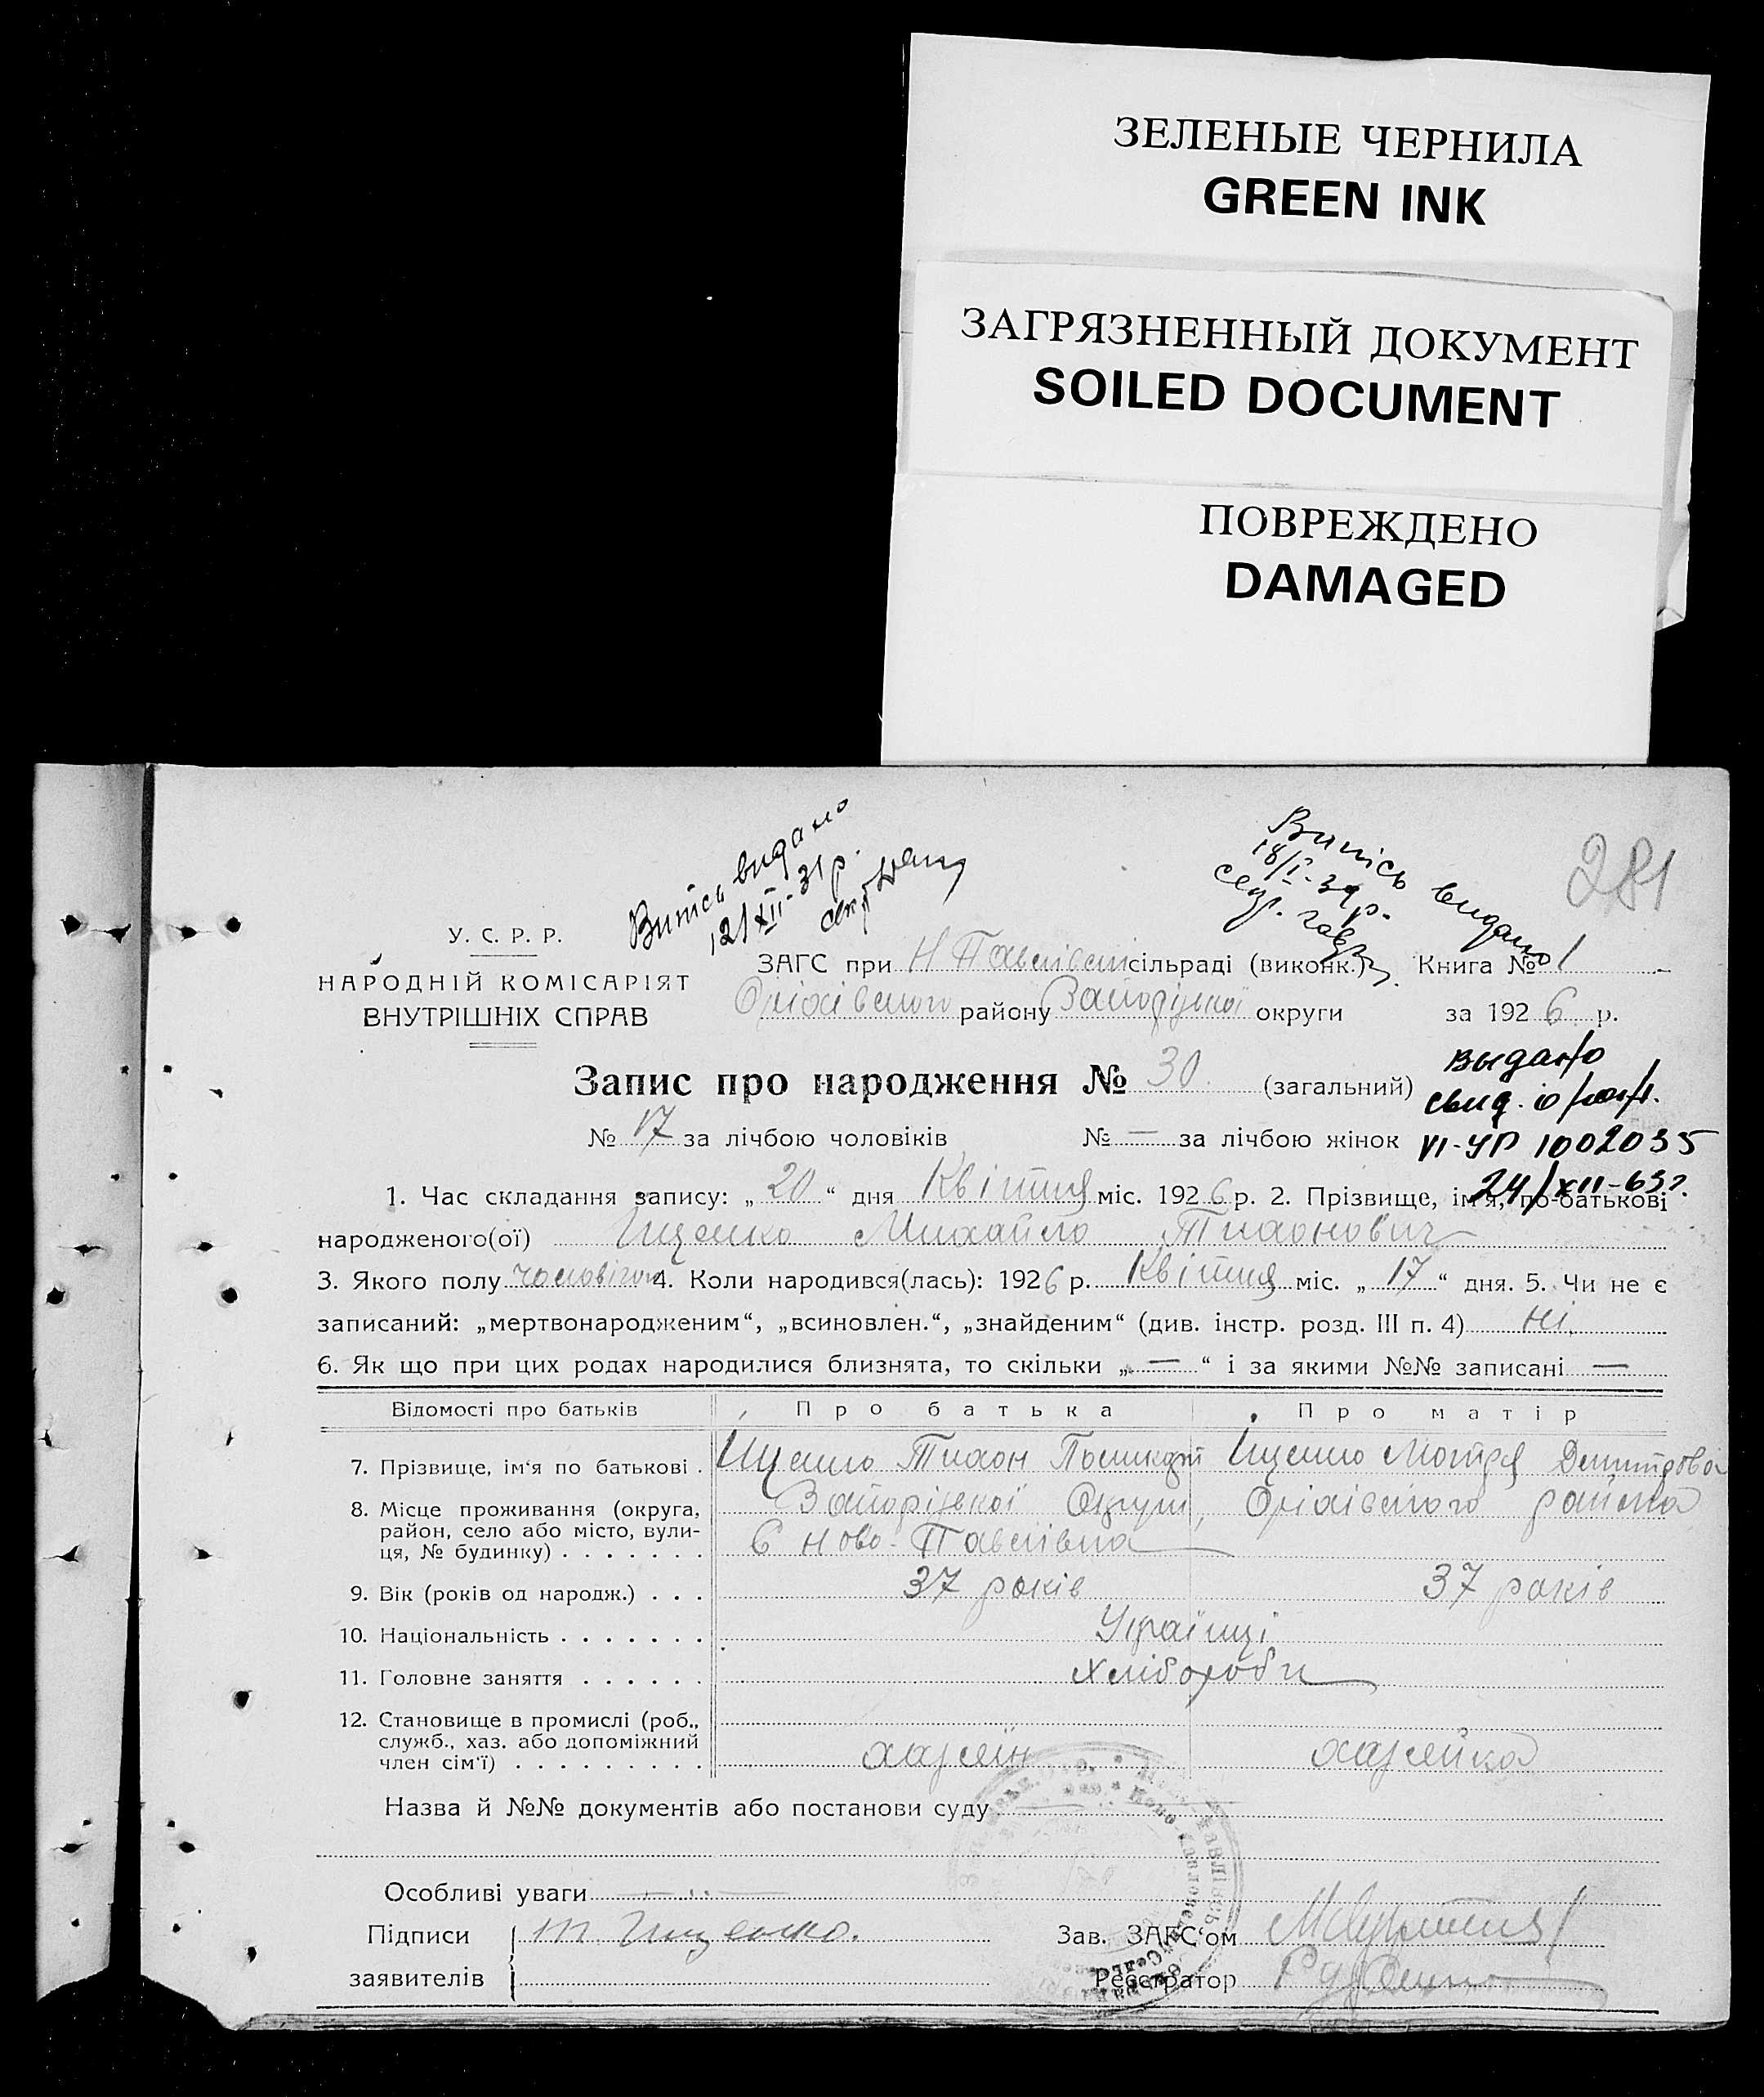 ЗЕЛЕНЫЕ ЧЕРНИЛА
GREEN INK
ЗАГРЯЗНЕННЫЙ ДОКУМЕНТ
SOILED DOCUMENT
ПОВРЕЖДЕНО
DAMAGED
281
Випісь видано
12/XII-31 р.
Випісь видано
18/I-34 р.
У. С. Р. Р.
НАРОДНІЙ КОМІСАРІЯТ
ВНУТРІШНІХ СПРАВ
ЗАГС при Н Павлівській сільраді (виконк.) Книга № 1
Оріхівського району Запоріжської округи за 1926 р.
Запис про народження № 30 (загальний)
выдано
свид. о рожд.
VI-УР 1002035
24/XII-63 г.
№ 17 за лічбою чоловіків № — за лічбою жінок
1. Час складання запису: „ 20 “ дня Квітня міс. 1926 р. 2. Прізвище, ім'я, по-батькові
народженого(ої) Іщенко Михайло Тихонович
3. Якого полу чоловічого 4. Коли народився(лась): 1926 р. Квітня міс. „ 17 “ дня. 5. Чи не є
записаний: „мертвонародженим“, „всиновлен.“, „знайденим“ (див. інстр. розд. III п. 4) Ні.
6. Як що при цих родах народилися близнята, то скільки „ — “ і за якими №№ записані —
Відомості про батьків Про батька Про матір
7. Прізвище, ім'я по батькові . Іщенко Тихон Іщенко Мотря Дмитрова
8. Місце проживання (округа, район, село або місто, вулиця, № будинку) . . . . . . . Запоріжської Округи, Оріхівського района
С Ново-Павлівка
9. Вік (років од народж.) . . . 37 років 37 років
10. Національність . . . . . . . Українці
11. Головне заняття . . . . . . Хлібороби
12. Становище в промислі (роб., служб., хаз. або допоміжний член сім'ї) . . . . . . . . . хазяїн хазяйка
Назва й №№ документів або постанови суду
Особливі уваги
Підписи заявителів Т. Іщенко.
Зав. ЗАГС'ом
Реєстратор